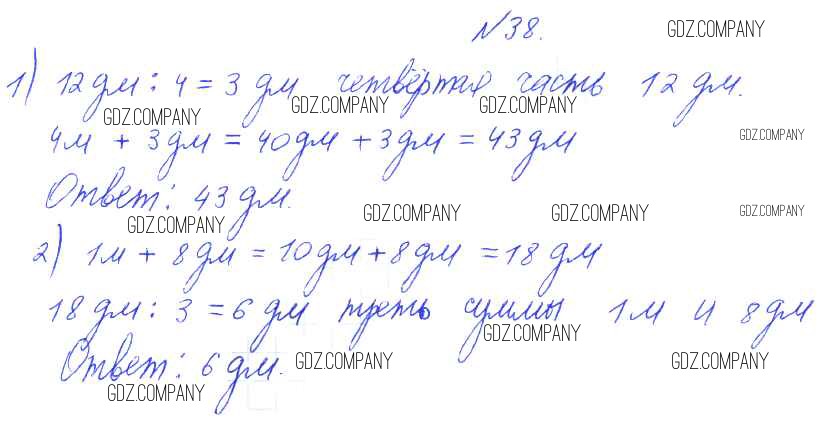 №38. GDZ.COMPANY
1) 12 дм : 4 = 3 дм четвёртая часть 12 дм.
GDZ.COMPANY GDZ.COMPANY GDZ.COMPANY
4м + 3 дм = 40 дм + 3 дм = 43 дм GDZ.COMPANY
Ответ: 43 дм.
GDZ.COMPANY GDZ.COMPANY GDZ.COMPANY GDZ.COMPANY
2) 1м + 8 дм = 10 дм + 8 дм = 18 дм
18 дм : 3 = 6 дм треть суммы 1м и 8 дм
GDZ.COMPANY
Ответ: 6 дм. GDZ.COMPANY GDZ.COMPANY
GDZ.COMPANY